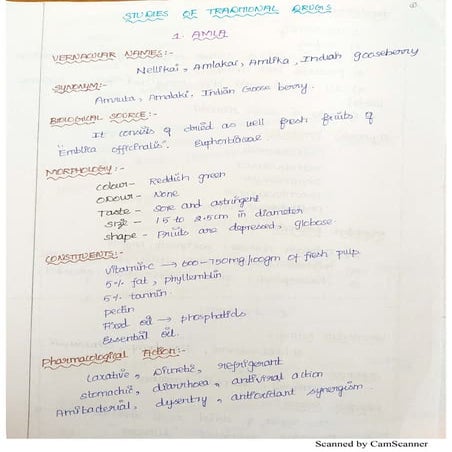 STUDIES OF TRADITIONAL DRUGS
1. AMLA
VERNACULAR NAMES:-
Nellikai, Amlakai, Amlika, Indian gooseberry
SYNONYM:-
Amruta, Amalaki, Indian Goose berry.
BIOLOGICAL SOURCE:-
It consists of dried as well fresh fruits of
"Emblica officinalis". Euphorbiaceae
MORPHOLOGY:-
Colour - Reddish green
ODOUR - None
Taste - Sore and astringent
Size - 1.5 to 2.5cm in diameter
shape - Fruits are depressed, globose.
CONSTITUENTS:-
Vitamin-c → 600-750mg/100gm of fresh pulp
5% fat, phyllemblin
5% tannin
pectin
Fixed oil → phosphatids
Essential oil.
Pharmacological Action:-
Laxative, Diuretic, refrigerant
stomachic, diarrhoea, antiviral action
Amibacterial, dysentry, antioxidant synergism.
Scanned by CamScanner